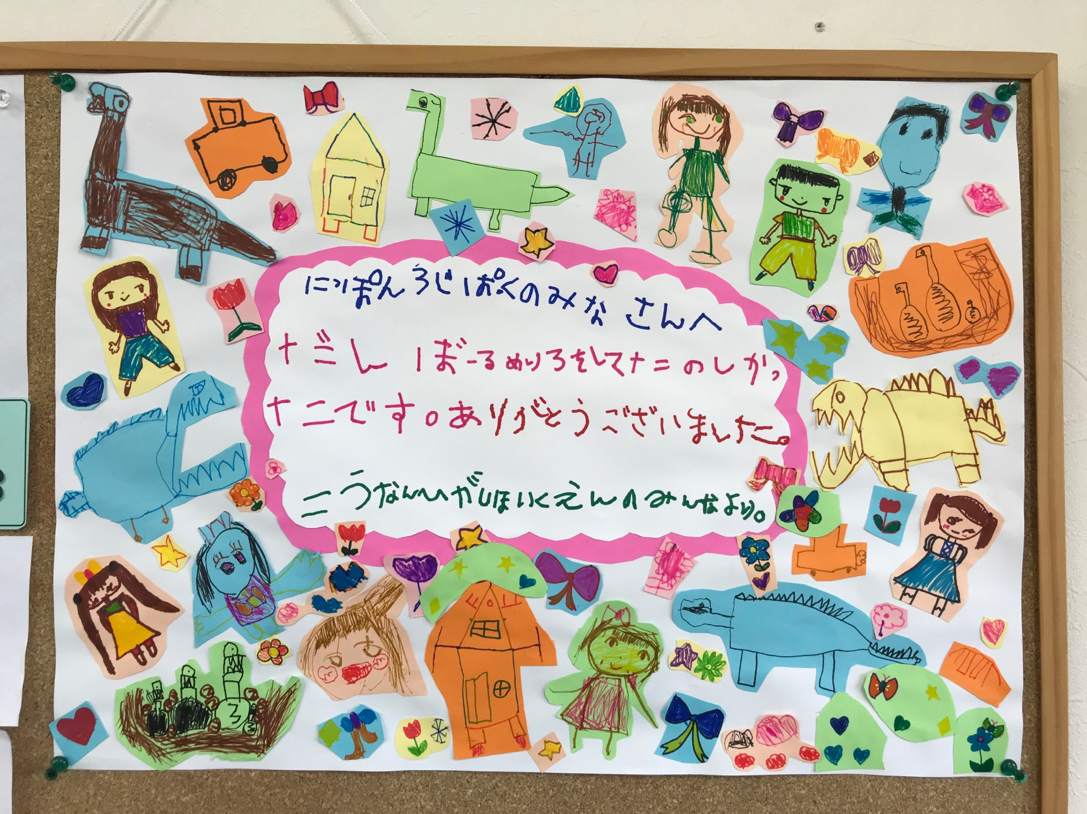 にっぽんろじぱくのみなさんへ
だんぼーるめいろをしてたのしかっ
たです。ありがとうございました。
こうなんひがしほいくえんのみんなより。